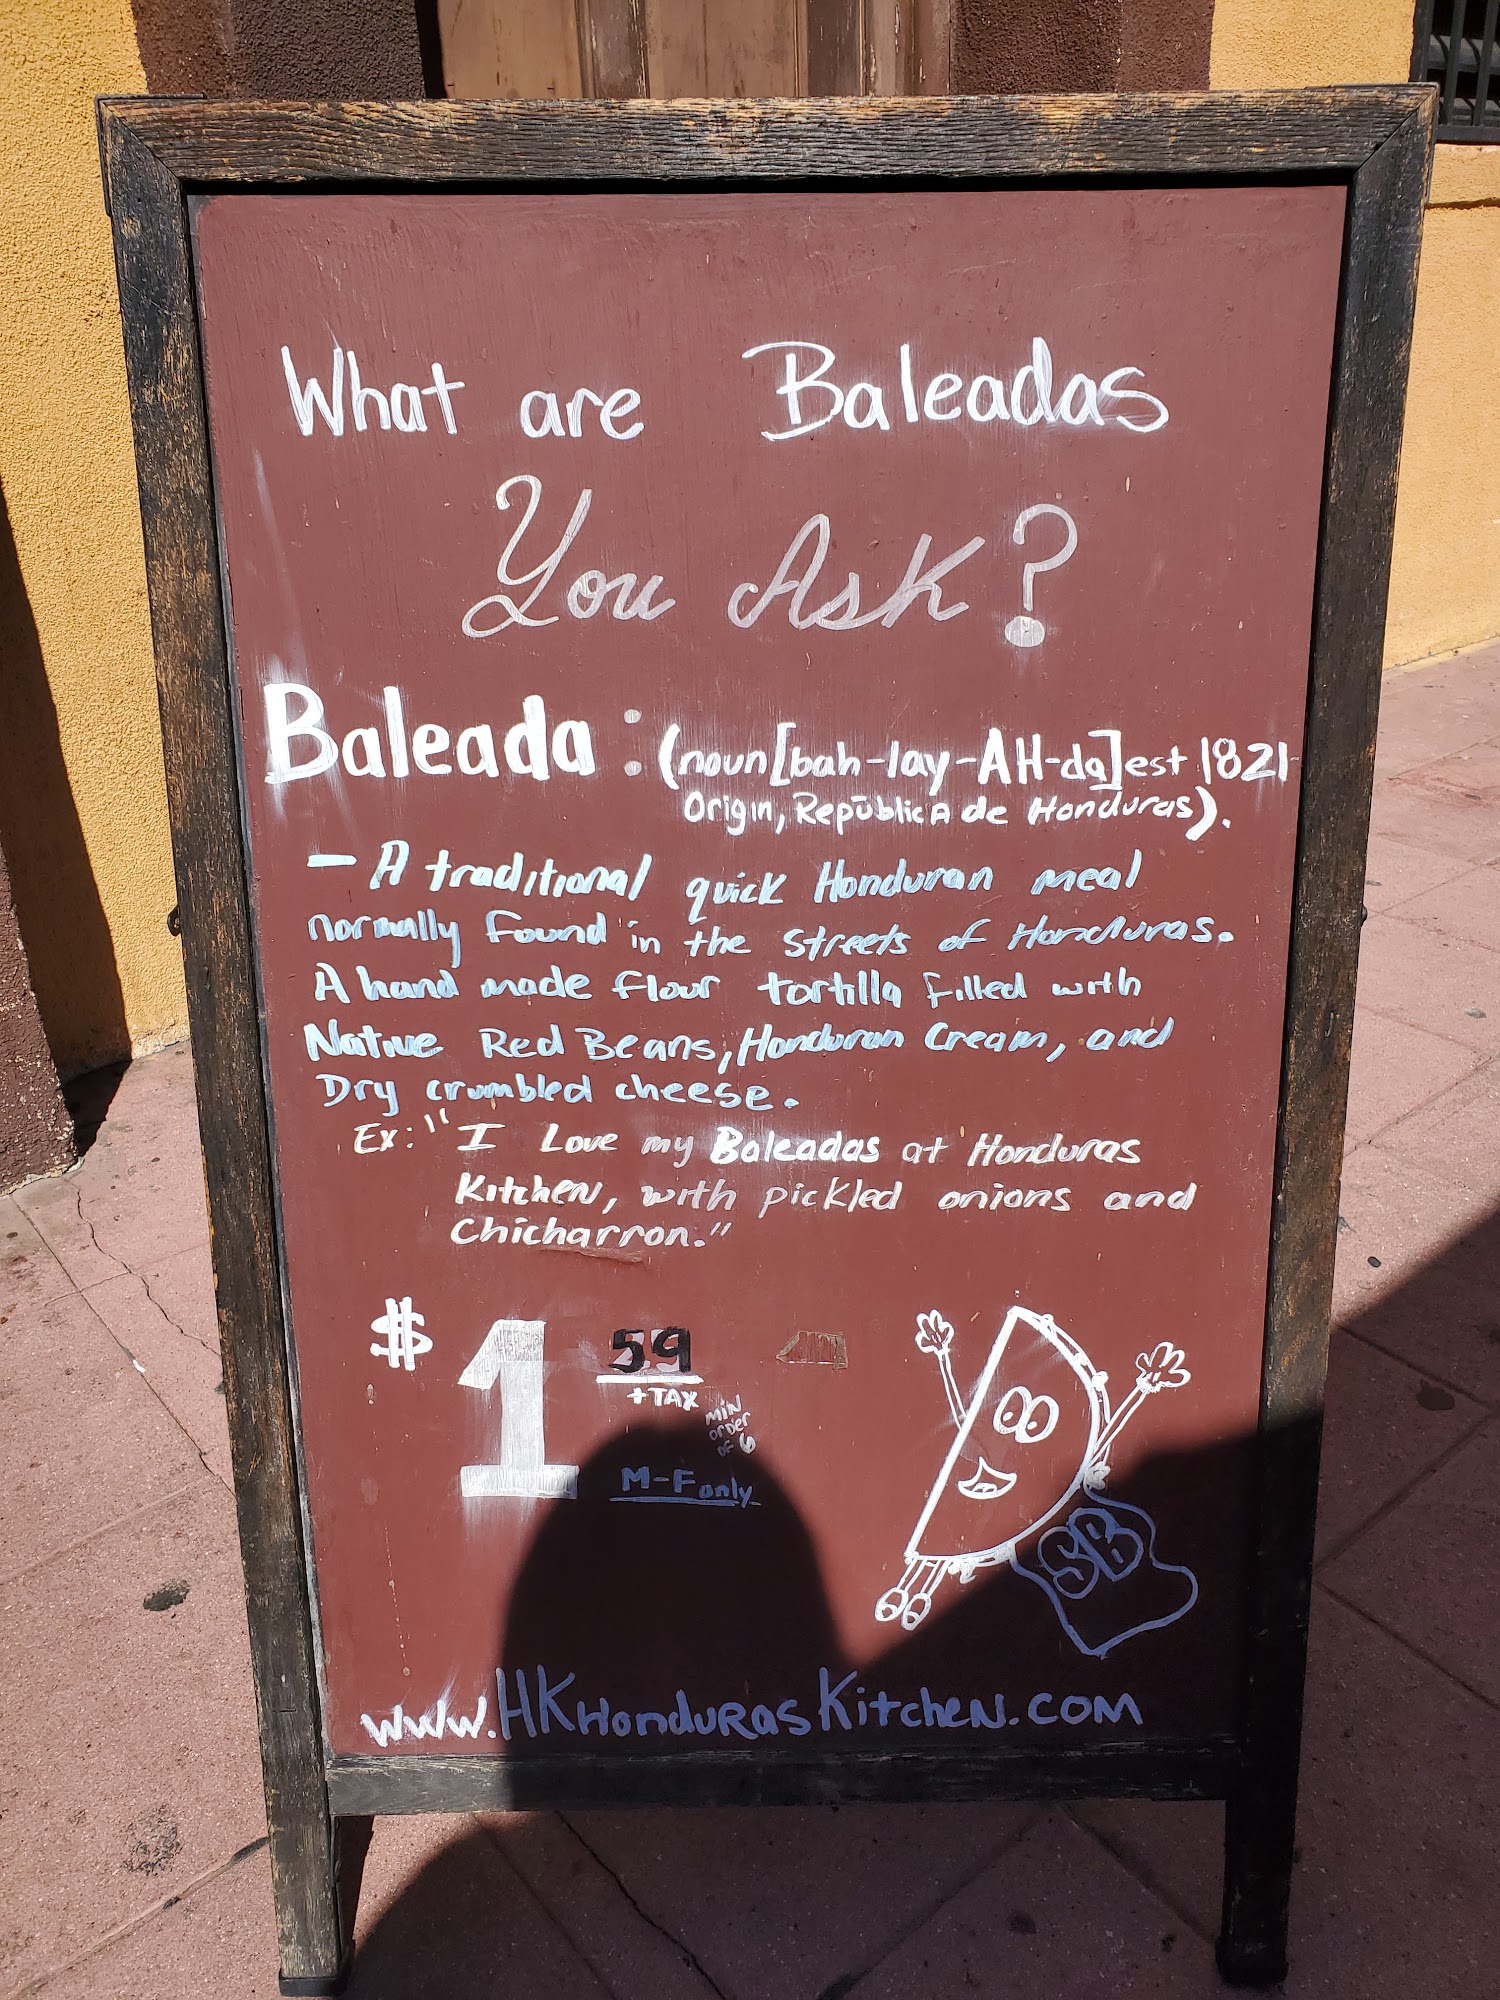 What are Baleadas
You Ask?
Baleada: (noun[bah-lay-AH-da]est 1821-
Origin, República de Honduras).
- A traditional quick Honduran meal
normally found in the streets of Honduras.
A hand made flour tortilla filled with
Native Red Beans, Honduran Cream, and
Dry crumbled cheese.
Ex: " I Love my Baleadas at Honduras
Kitchen, with pickled onions and
Chicharron."
$1 59
+ TAX
MIN
order
of 6
M-F only
SB
www.HKHondurasKitchen.com